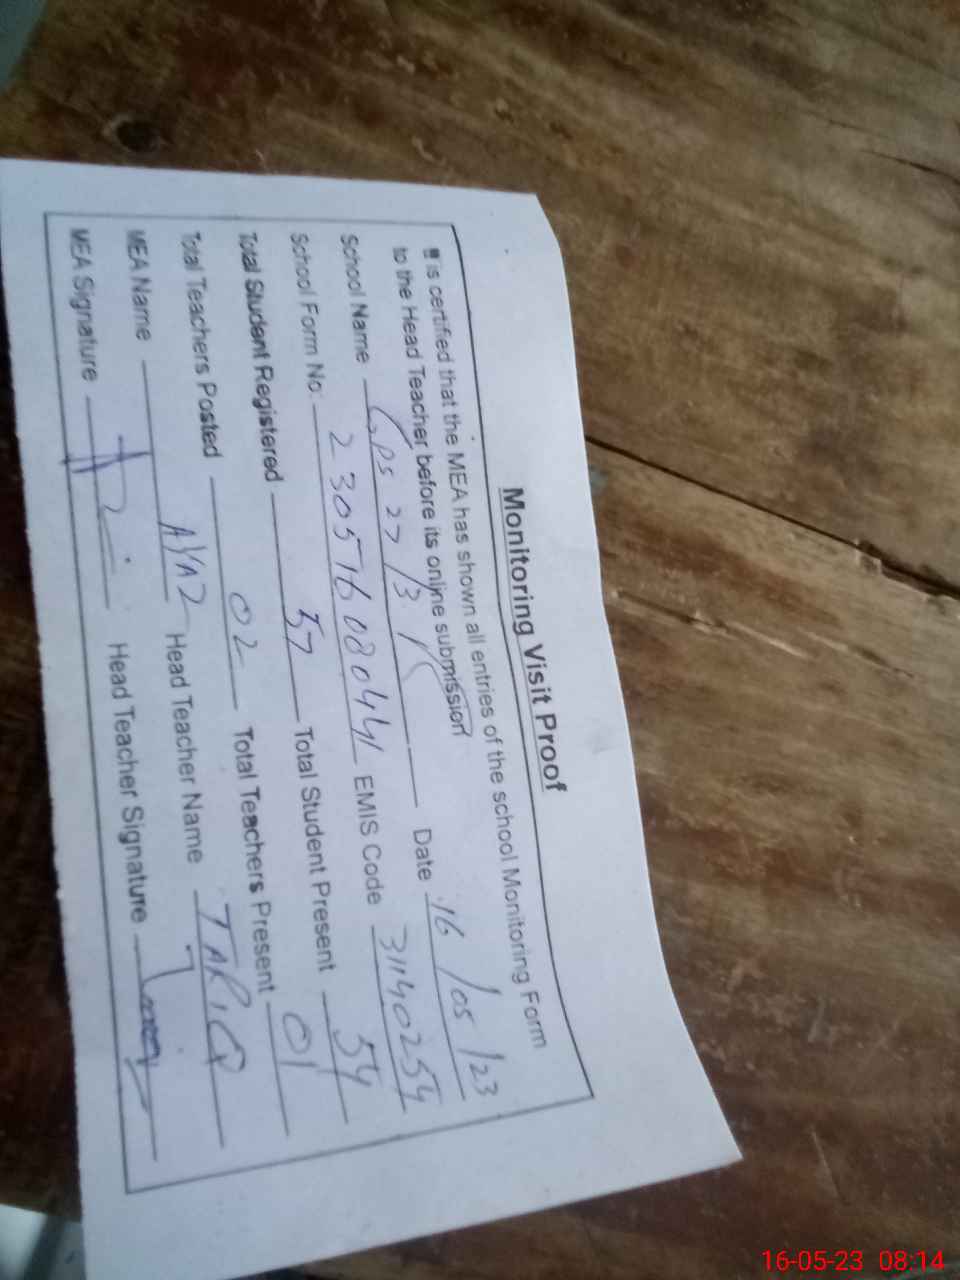 Monitoring Visit Proof
It is certified that the MEA has shown all entries of the school Monitoring Form
to the Head Teacher before its online submission
School Name GPS 27/3R Date 16/05/23
School Form No: 23057608044 EMIS Code 31140254
Total Student Registered 57 Total Student Present 54
Total Teachers Posted 02 Total Teachers Present 01
MEA Name AYAZ Head Teacher Name TARIQ
MEA Signature Head Teacher Signature
16-05-23 08:14